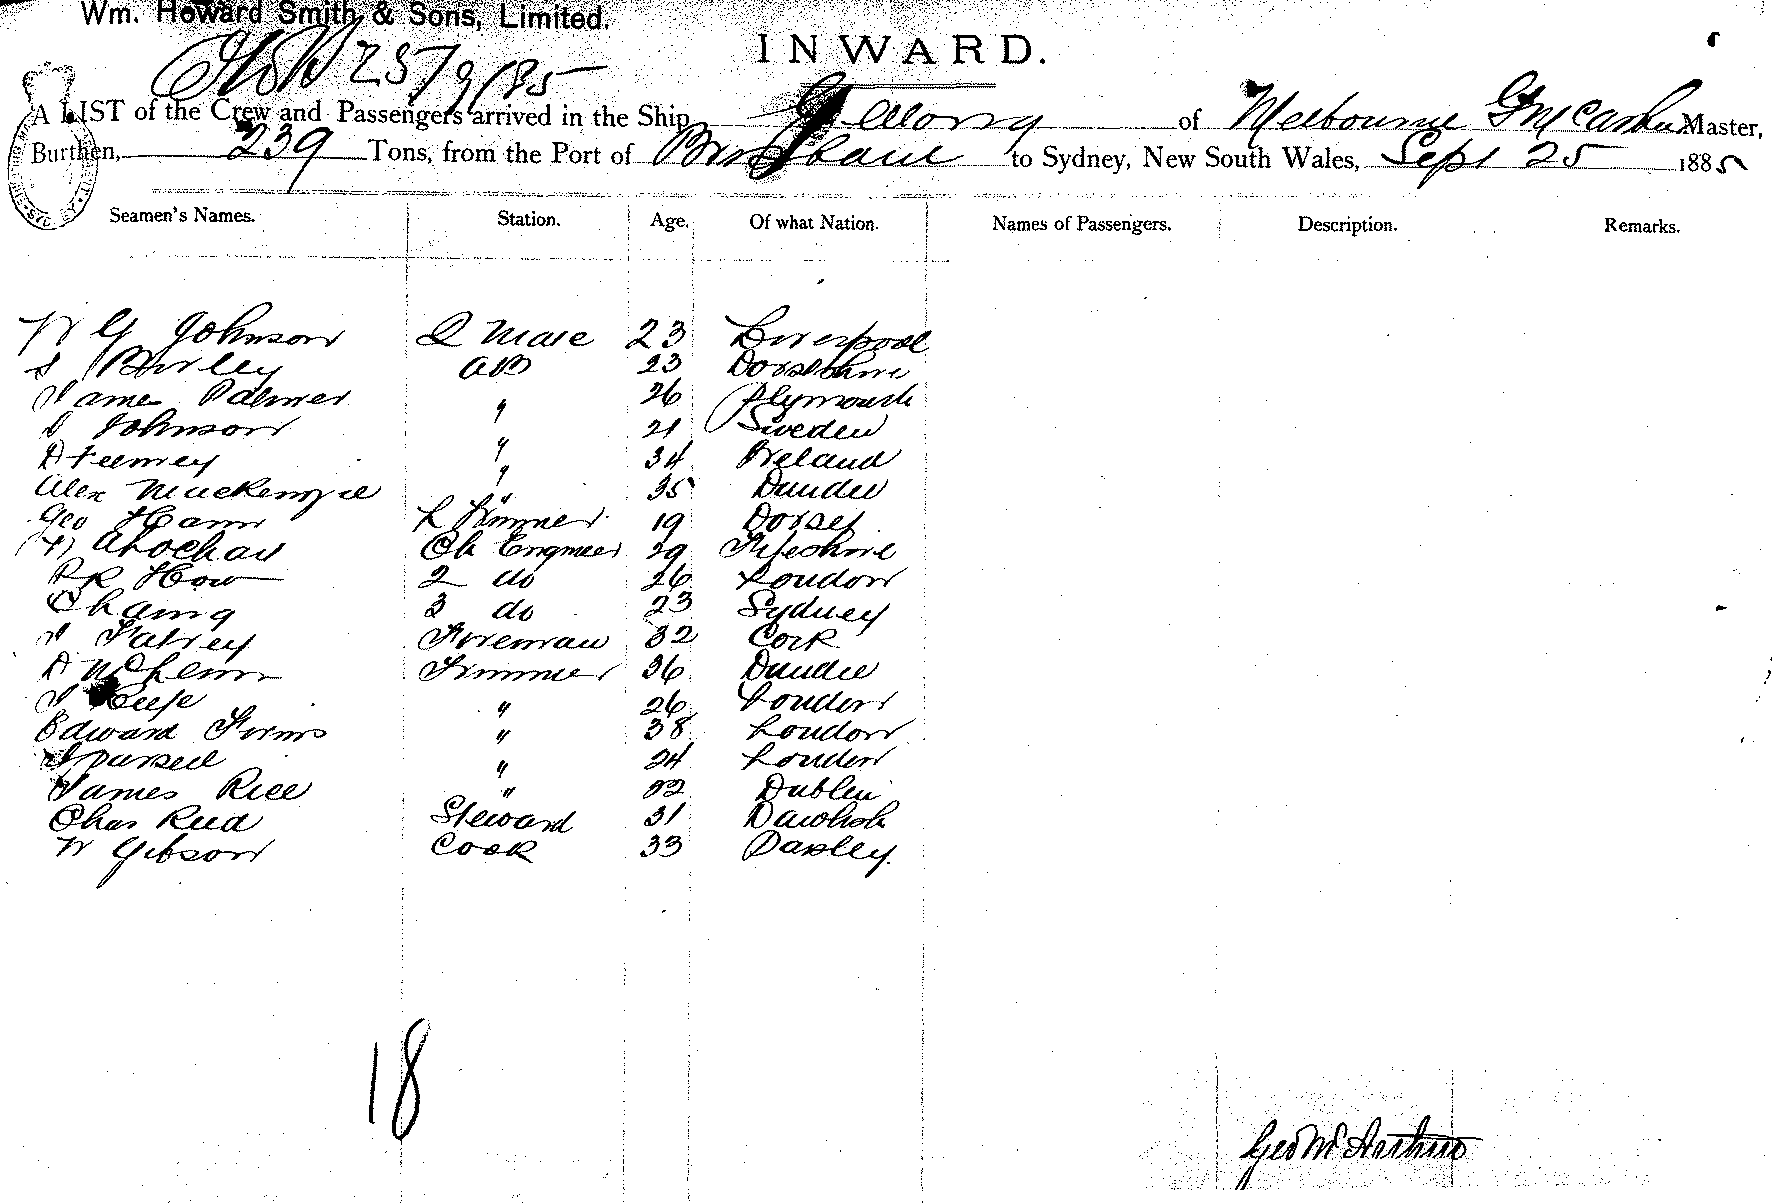 Wm. Howard Smith & Sons, Limited.
25/9/85
INWARD.
A LIST of the Crew and Passengers arrived in the Ship Geelong of Melbourne G McArthur Master,
Burthen, 239 Tons, from the Port of Brisbane to Sydney, New South Wales, Sept 25 1885
Seamen's Names. Station. Age. Of what Nation. Names of Passengers. Description. Remarks.
W G Johnson 2 Mate 23 Liverpool
Burley AB 23 Dorsetshire
James Palmer " 26 Plymouth
Johnson " 21 Sweden
A Feemey " 34 Ireland
Alex Mackenzie " 35 Dundee
Geo Hann L Trimmer 19 Dorset
Ch Engineer 29 Fifeshire
R R How 2 do 26 London
Chaing 3 do 23 Sydney
Foreman 32 Cork
Trimmer 36 Dundee
" 26 London
Edward " 38 London
" 24 London
James Rice " 32 Dublin
Chas Reed Steward 31 Dawlish
W Gibson Cook 33 Paisley
18
Geo McArthur